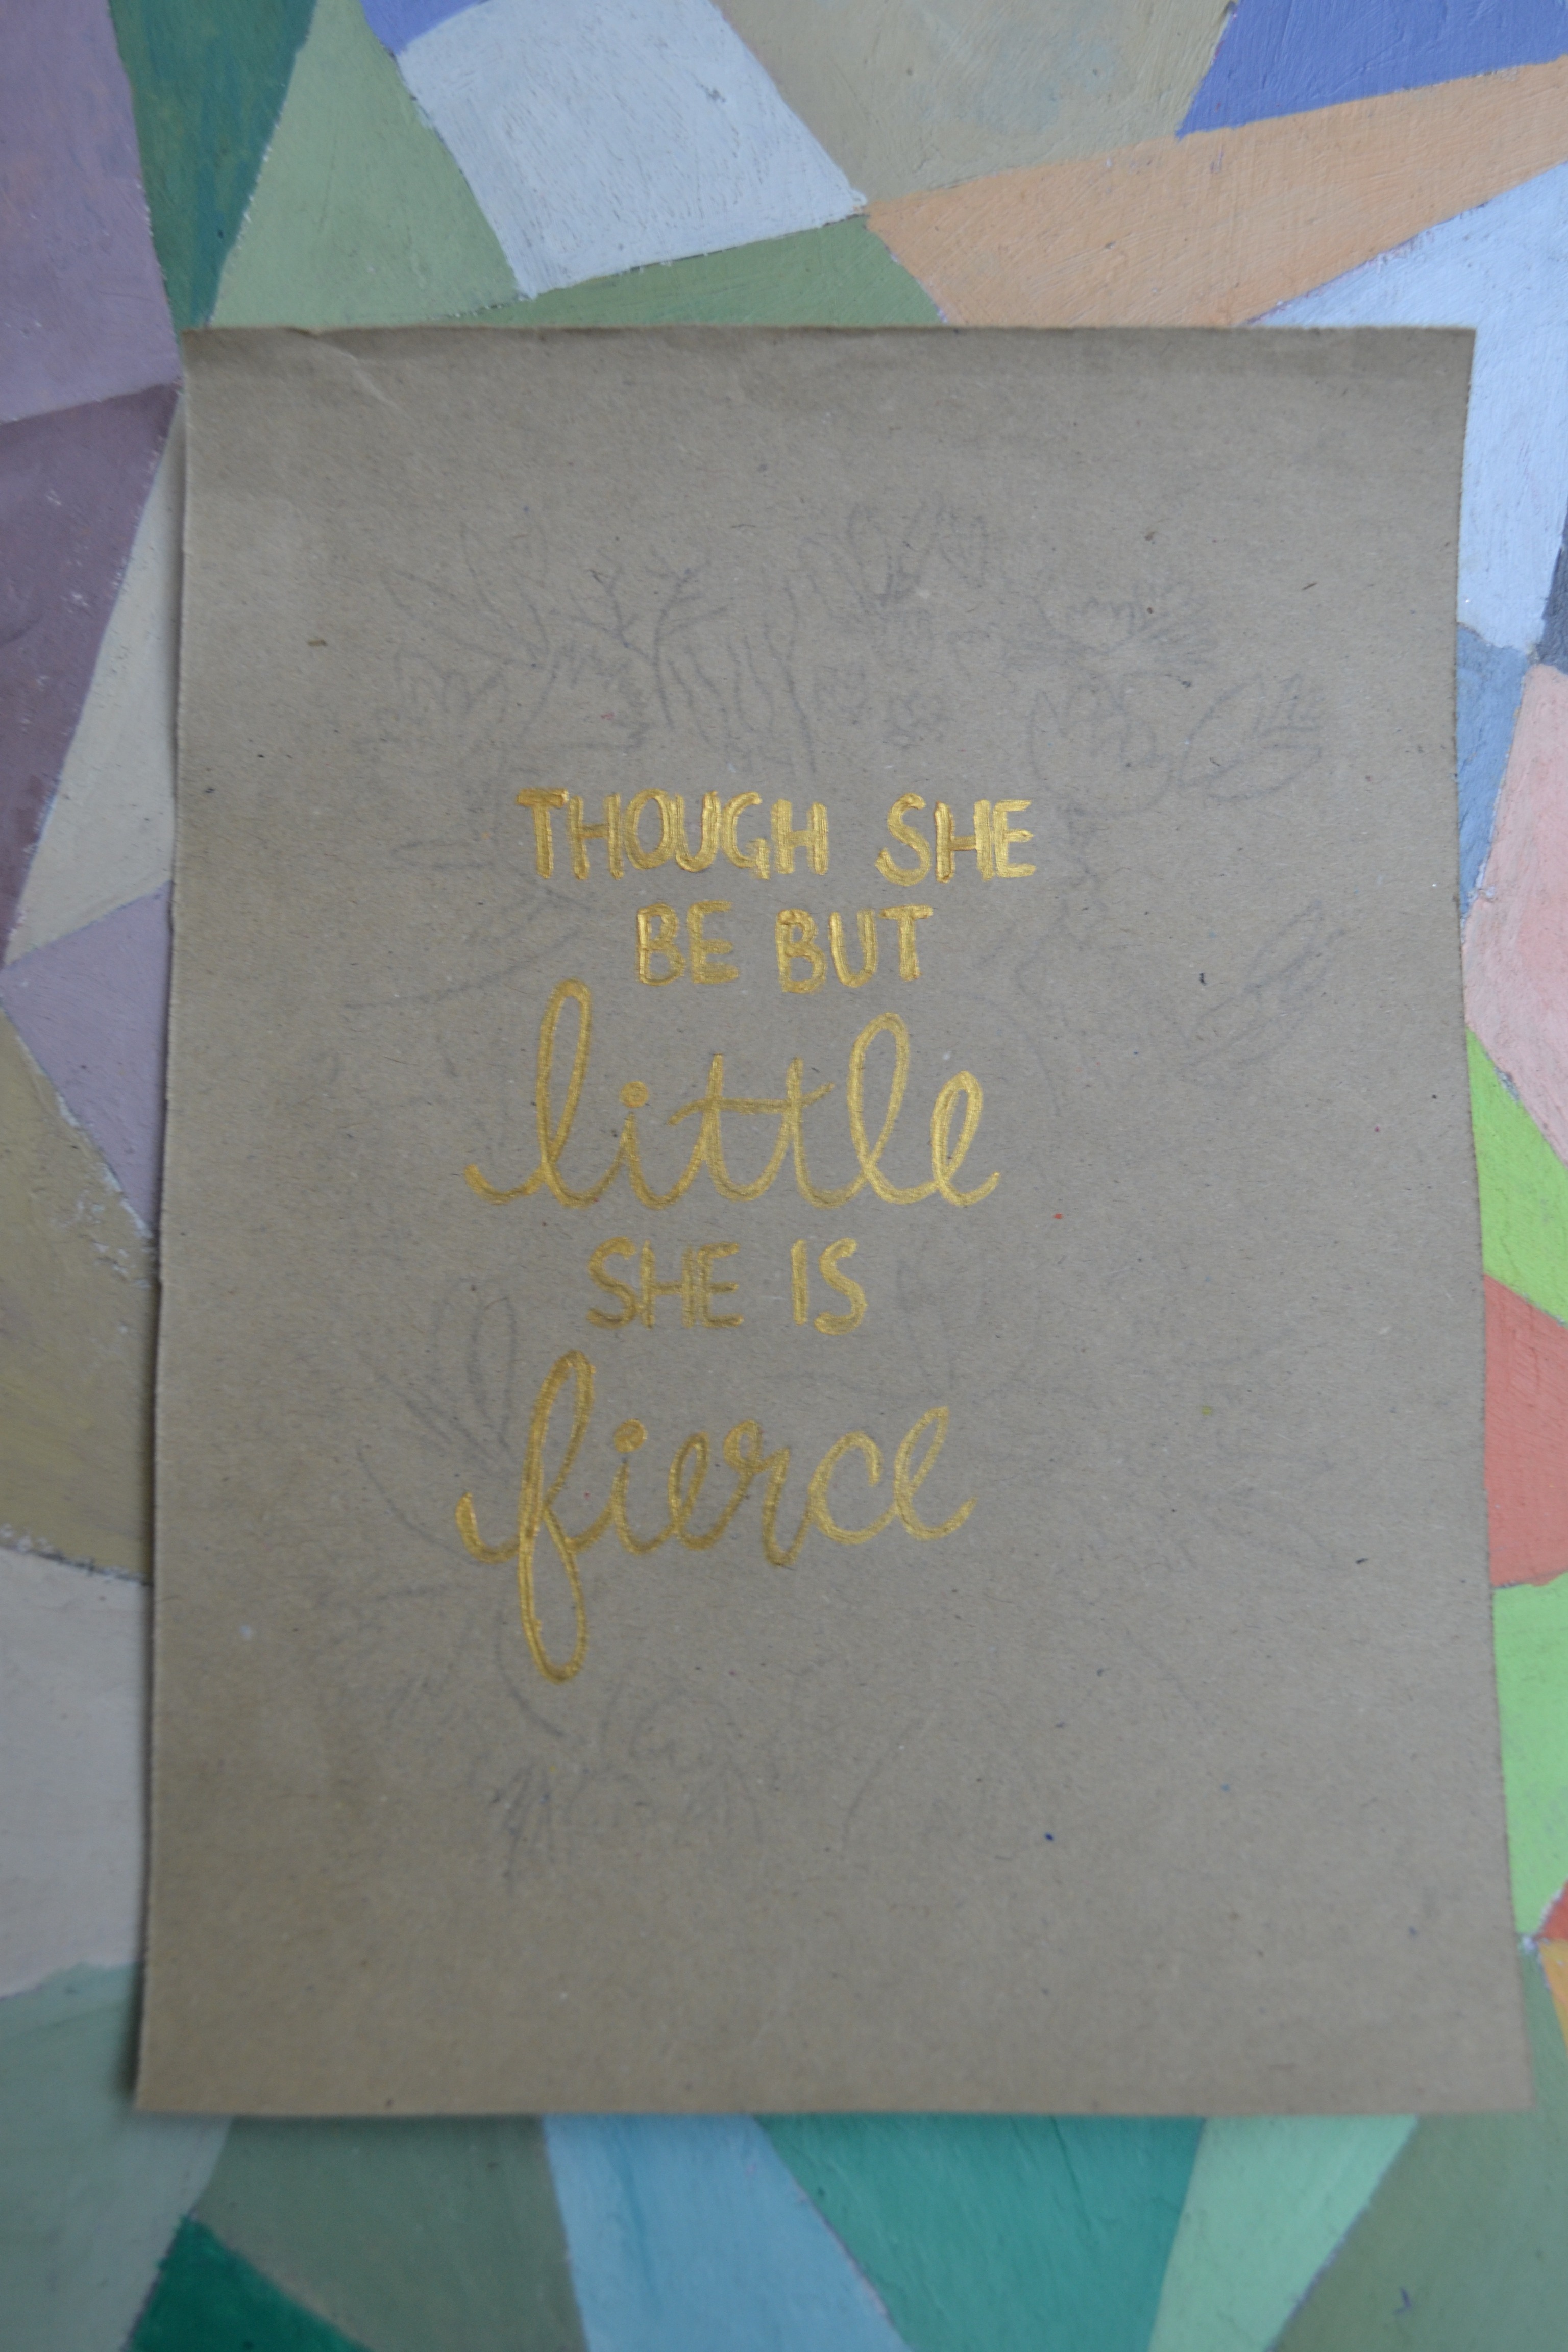 THOUGH SHE
BE BUT
little
SHE IS
fierce